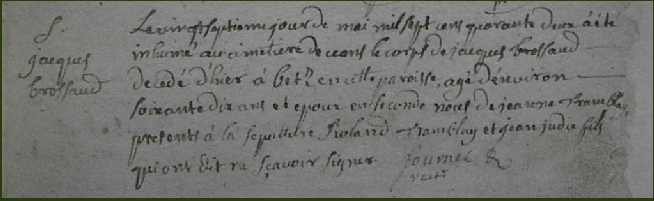 S.
jacques
brossaud
Le vingt septieme jour de mai mil sept cens quarante deux a été
inhumé au cimetiere de ceans le corps de jacques brossaud
decedé d'hier à en cette paroisse, agé d'environ
soixante dix ans et epoux en seconde noces de jeanne tramblay
presents à la sepulture Roland tramblay et jean judic fils
qui ont dit ne sçavoir signer fournel R
rectr